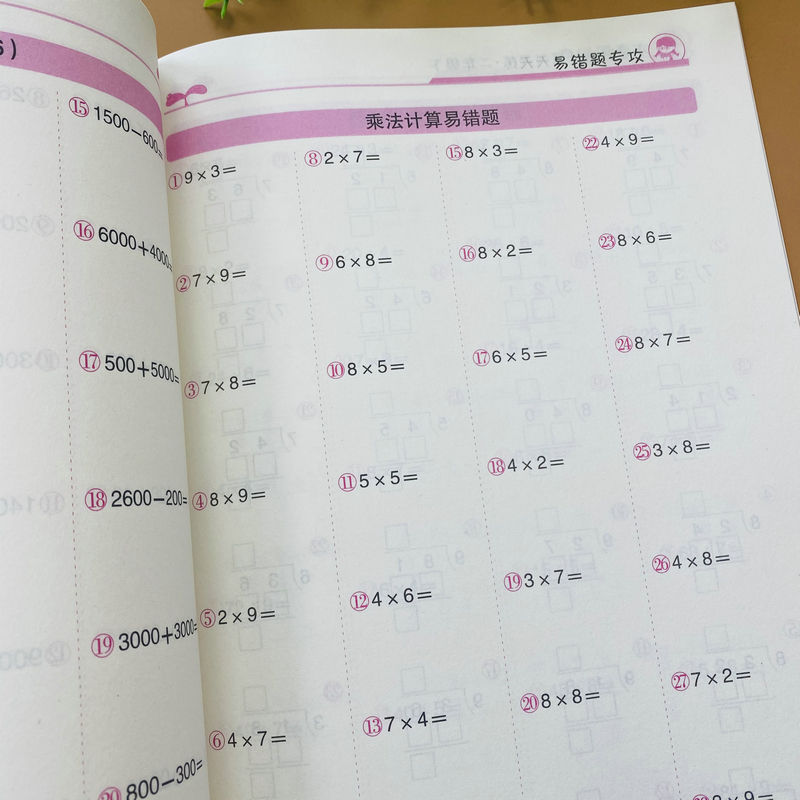 6)
⑮1500−600=
⑯6000+4000=
⑰500+5000=
⑱2600−200=
⑲3000+3000=
⑳800−300=
易错题专攻
乘法计算易错题
①9×3=
②7×9=
③7×8=
④8×9=
⑤2×9=
⑥4×7=
⑧2×7=
⑨6×8=
⑩8×5=
⑪5×5=
⑫4×6=
⑬7×4=
⑮8×3=
⑯8×2=
⑰6×5=
⑱4×2=
⑲3×7=
⑳8×8=
㉒4×9=
㉓8×6=
㉔8×7=
㉕3×8=
㉖4×8=
㉗7×2=
×9=